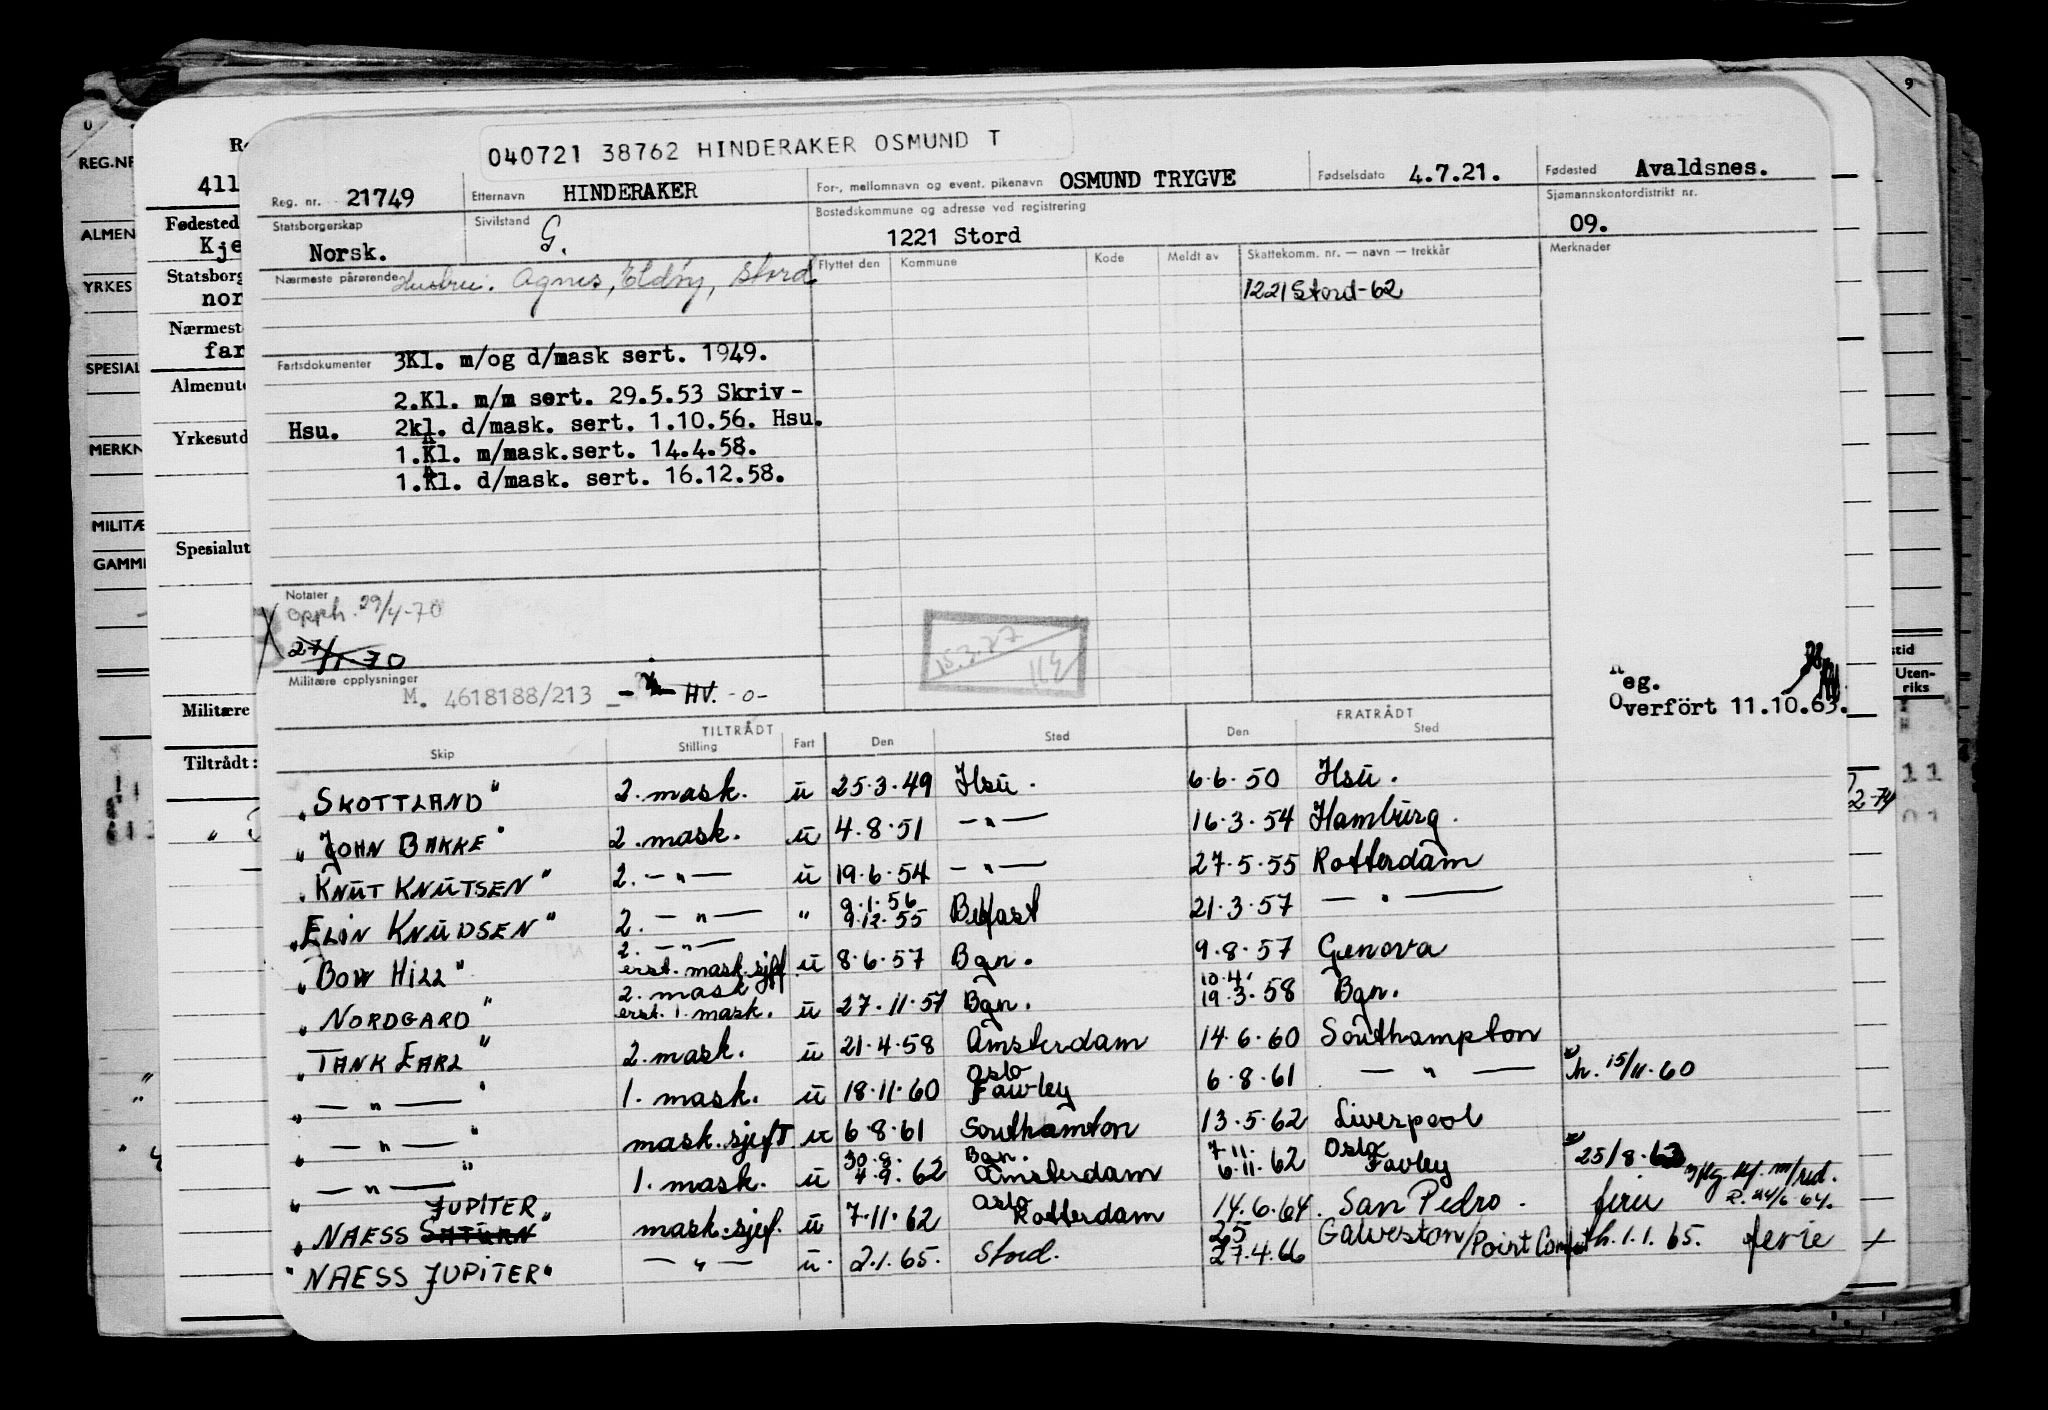 040721 38762 HINDERAKER OSMUND T
Reg. nr. 21749 Etternavn HINDERAKER For-, mellomnavn og event. pikenavn OSMUND TRYGVE Fødselsdato 4.7.21. Fødested Avaldsnes.
Statsborgerskap Norsk. Sivilstand G. Bostedskommune og adresse ved registrering 1221 Stord Sjømannskontordistrikt nr. 09.
Nærmeste pårørende Hustru: Agnes, Eldøy, Stord Flyttet den Kommune Kode Meldt av Skattekomm. nr. — navn — trekkår Merknader
1221 Stord-62
Fartsdokumenter 3Kl. m/og d/mask sert. 1949.
2.Kl. m/m sert. 29.5.53 Skriv -
Hsu. 2kl. d/mask. sert. 1.10.56. Hsu.
1.Kl. m/mask.sert. 14.4.58.
1.Kl. d/mask. sert. 16.12.58.
Notater
Opph. 29/4-70
Militære opplysninger M. 4618188/213 HV. -o-
Reg.
Overfört 11.10.63.
TILTRÅDT FRATRÅDT
Skip Stilling Fart Den Sted Den Sted
"SKOTTLAND" 2. mask. u 25.3.49 Hsu. 6.6.50 Hsu.
"JOHN BAKKE" 2. mask. u 4.8.51 —"— 16.3.54 Hamburg.
"KNUT KNUTSEN" 2. —"— u 19.6.54 —"— 27.5.55 Rotterdam
9.1.56
"ELIN KNUDSEN" 2. —"— " 9.12.55 Belfast 21.3.57 —"—
2. —"—
"BOW HILL" erst. mask.sjef. u 8.6.57 Bgn. 9.8.57 Genova
2. mask 10.4.
"NORDGARD" erst. 1. mask. u 27.11.57 Bgn. 19.3.58 Bgn.
"TANK EARL" 2. mask. u 21.4.58 Amsterdam 14.6.60 Southampton
Oslo
"—"—" 1. mask. u 18.11.60 Fawley 6.8.61 —"— h. 15/11.60
"—"—" mask.sjeft u 6.8.61 Southamton 13.5.62 Liverpool
30.8. Bgn. 7.11. Oslo
"—"—" 1. mask. u 4.9.62 Amsterdam 6.11.62 Fawley 25/8.62
JUPITER Oslo
"NAESS SATURN" mask.sjef. u 7.11.62 Rotterdam 14.6.64. San Pedro. ferie
25
"NAESS JUPITER" —"— u. 2.1.65. Stord. 27.4.66 Galveston/Point Comfort h. 1.1.65. ferie
REG.NR
ALMEN
YRKES
SPESIAL
MERKN
MILITÆ
GAMM
411
Fødested
Kje
Statsborg
nor
Nærmest
far
Almenut
Yrkesutd
Spesialut
Militære
Tiltrådt:
stid
Uten-
riks
9